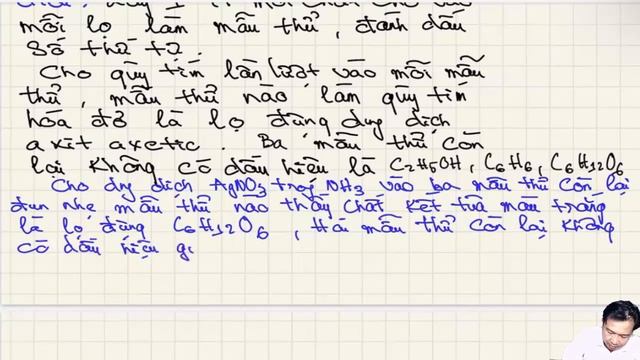 mỗi lọ làm mẫu thử, đánh dấu
số thứ tự.
Cho quỳ tím lần lượt vào mỗi mẫu
thử, mẫu thử nào làm quỳ tím
hóa đỏ là lọ đựng dung dịch
axit axetic. Ba mẫu thử còn
lại không có dấu hiệu là C2H5OH, C6H6, C6H12O6
Cho dung dịch AgNO3 trong NH3 vào ba mẫu thử còn lại
đun nhẹ mẫu thử nào thấy chất kết tủa màu trắng
là lọ đựng C6H12O6, Hai mẫu thử còn lại không
có dấu hiệu gì